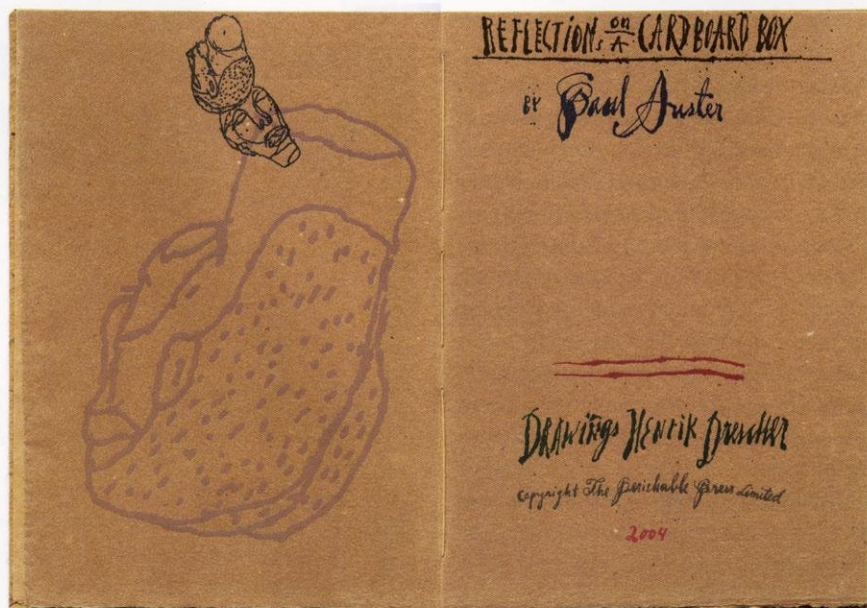 REFLECTIONS on A CARDBOARD BOX
BY Paul Auster
DRAWiNgs HENRiK Drescher
copyright The Perishable Press Limited
2004